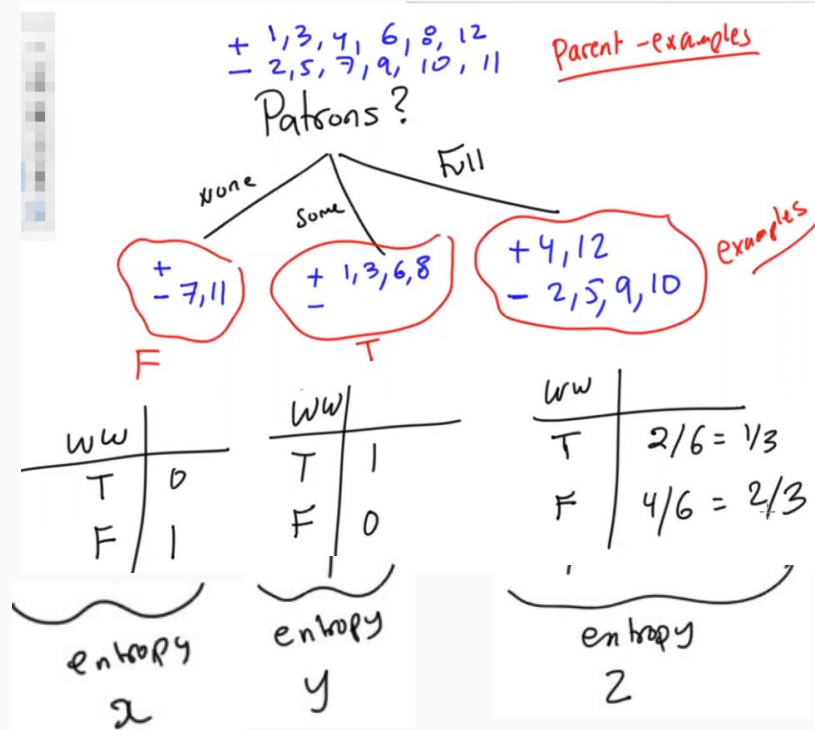 + 1,3,4, 6,8,12
- 2,5,7,9, 10,11
Parent-examples
Patrons?
None
Some
Full
+
- 7,11
F
+ 1,3,6,8
-
T
+ 4,12
- 2,5,9,10
examples
WW
T 0
F 1
WW
T 1
F 0
WW
T 2/6 = 1/3
F 4/6 = 2/3
entropy
x
entropy
y
entropy
z